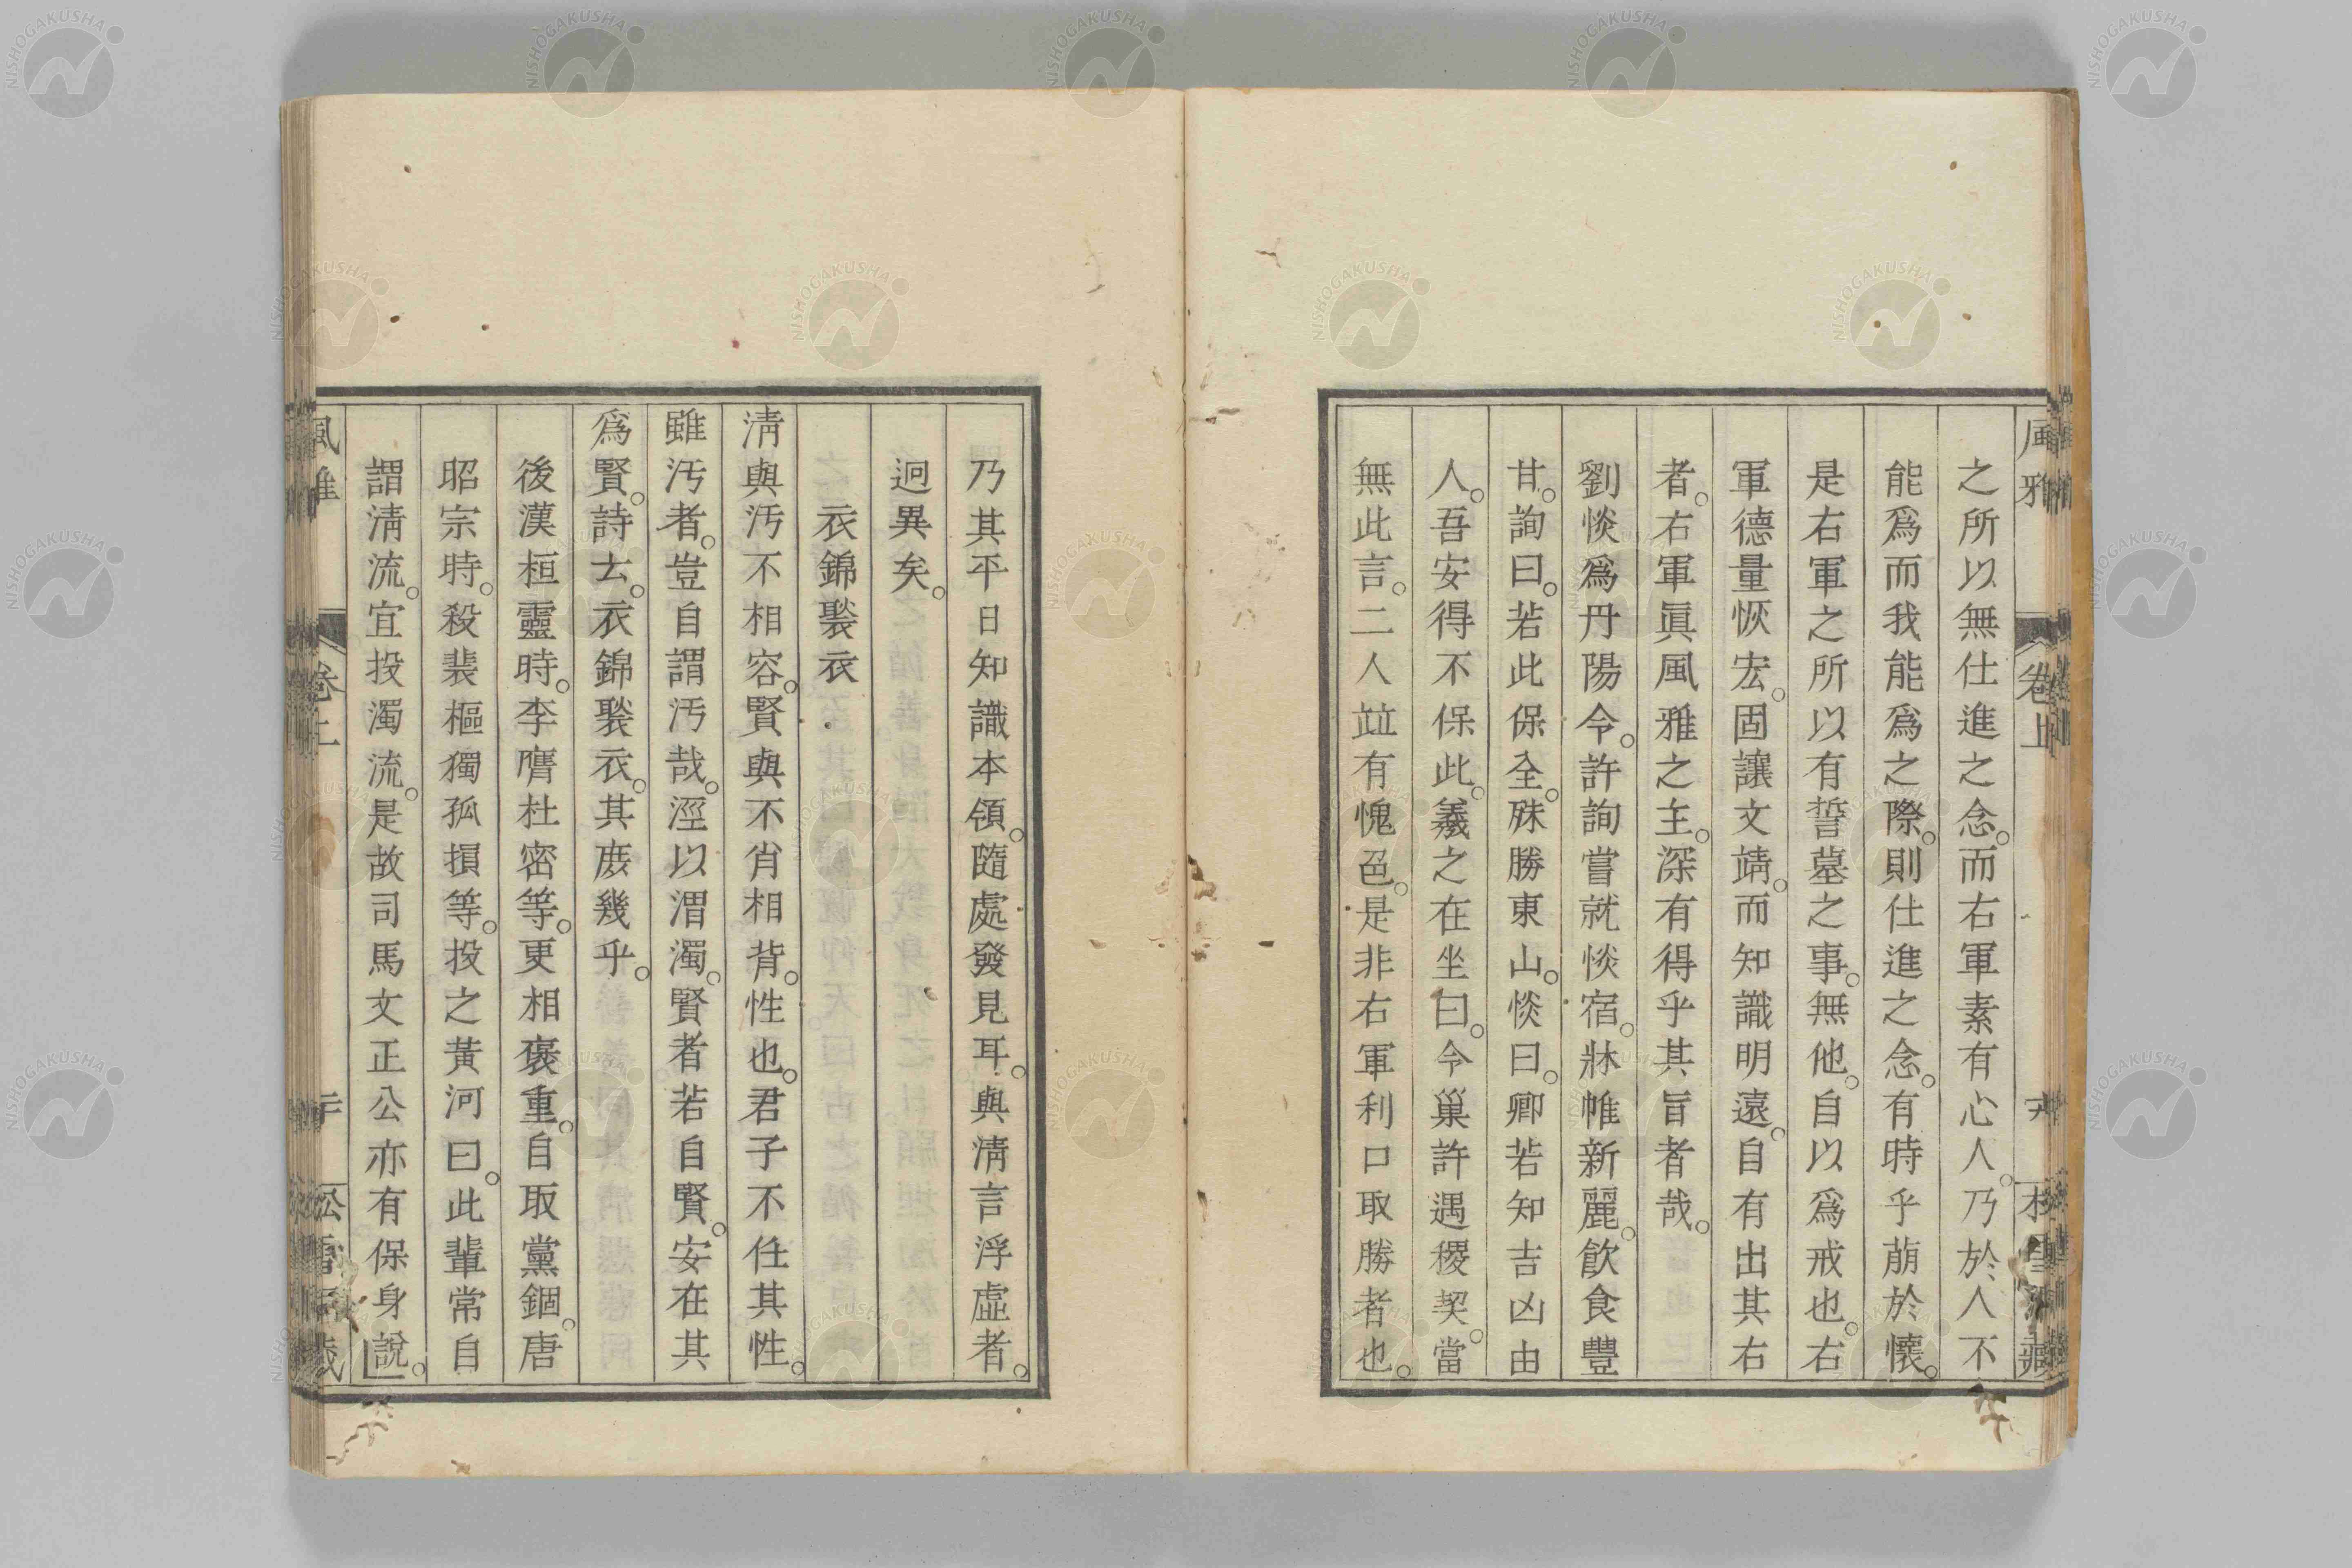 之所以無仕進之念。而右軍素有心人。乃於人不
能爲而我能爲之際。則仕進之念。有時乎萠於懷。
是右軍之所以有誓墓之事。無他。自以爲戒也。右
軍德量恢宏。固讓文靖。而知識明遠。自有出其右
者。右軍眞風雅之主。深有得乎其旨者哉。
劉惔爲丹陽令。許詢嘗就惔宿。牀帷新麗。飮食豐
甘。詢曰。若此保全。殊勝東山。惔曰。卿若知吉凶由
人。吾安得不保此。羲之在坐曰。令巢許遇稷契。當
無此言。二人竝有愧色。是非右軍利口取勝者也。
乃其平日知識本領。隨處發見耳。與淸言浮虛者。
迥異矣。
衣錦褧衣
淸與汚不相容。賢與不肖相背。性也。君子不任其性。
雖汚者。豈自謂汚哉。涇以渭濁。賢者若自賢。安在其
爲賢。詩云。衣錦褧衣。其庶幾乎。
後漢桓靈時。李膺杜密等。更相褒重。自取黨錮。唐
昭宗時。殺裴樞獨孤損等。投之黃河曰。此輩常自
謂淸流。宜投濁流。是故司馬文正公亦有保身說。
風雅
卷上